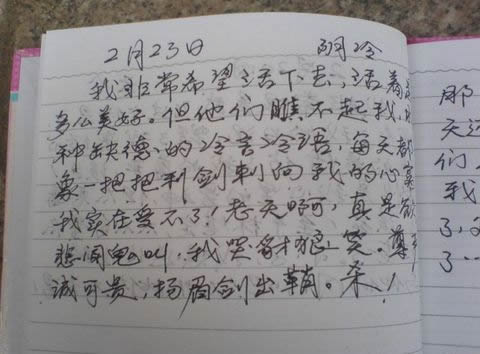 2月23日 阴冷
我非常希望活下去，活着是
多么美好。但他们瞧不起我，
种缺德的冷言冷语，每天都
像一把把利剑刺向我的心窝
我实在受不了！老天啊，真是欲
悲闻鬼叫，我哭豺狼笑。尊严
诚可贵，扬眉剑出鞘。杀！
那
天
们
我
了，
了…